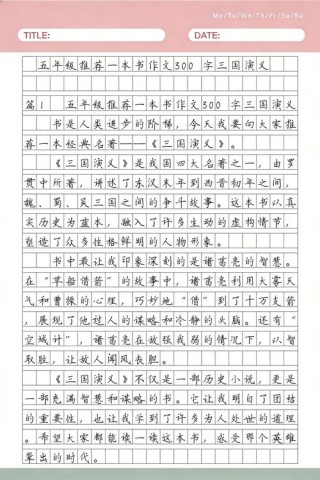 Me/Tu/We/Th/Fr/Sa/Su
TITLE:
DATE:
五年级推荐一本书作文300 字三国演义
篇1 五年级推荐一本书作文300 字三国演义
书是人类进步的阶梯,今天我要向大家推
荐一本经典名著——《三国演义》。
《三国演义》是我国四大名著之一,由罗
贯中所著,讲述了东汉末年到西晋初年之间,
魏、蜀、吴三国之间的争斗故事。这本书以真
实历史为蓝本,融入了许多生动的虚构情节,
塑造了众多性格鲜明的人物形象。
书中最让我印象深刻的是诸葛亮的智慧。
在“草船借箭”的故事中,诸葛亮利用大雾天
气和曹操的心理,巧妙地“借”到了十万支箭
,展现了他过人的谋略和冷静的头脑。还有“
空城计”,诸葛亮在敌强我弱的情况下,以智
取胜,让敌人闻风丧胆。
《三国演义》不仅是一部历史小说,更是
一部充满智慧和谋略的书。它让我明白了团结
的重要性,也让我学到了许多为人处世的道理
。希望大家都能读一读这本书,感受那个英雄
辈出的时代。